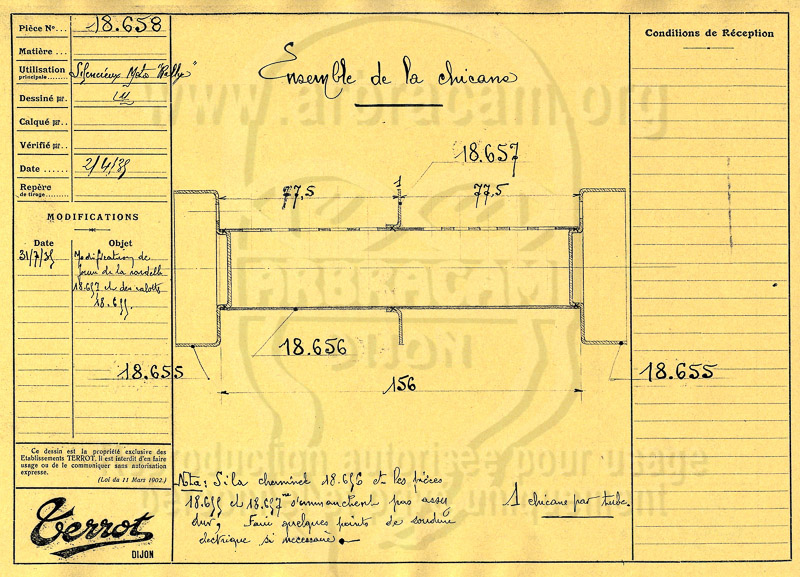 Pièce Nº... 18.658
Matière ..
Utilisation principale....... Silencieux Moto "Rallye"
Dessiné par.
Calqué par..
Vérifié par..
Date ...... 2/4/35
Repère de tirage.......
MODIFICATIONS
Date Objet
31/7/35 Modification de
forme de la rondelle
18.657 et des calotts
18.655.
Ce dessin est la propriété exclusive des
Etablissements TERROT, il est interdit d'en faire
usage ou de le communiquer sans autorisation
expresse.
(Loi du 11 Mars 1902.)
Terrot
DIJON
www.arbracam.org
Ensemble de la chicane
18.657
77,5
1
77,5
ARBRACAM
DIJON
18.656
18.655
18.655
156
reproduction autorisée pour usage
Nota: Si la cheminée 18.656 et les pièces
18.655 et 18.657 s'emmanchent pas assez
dur, Faire quelques points de soudure
électrique si nécessaire.
1 chicane par tube.
Conditions de Réception